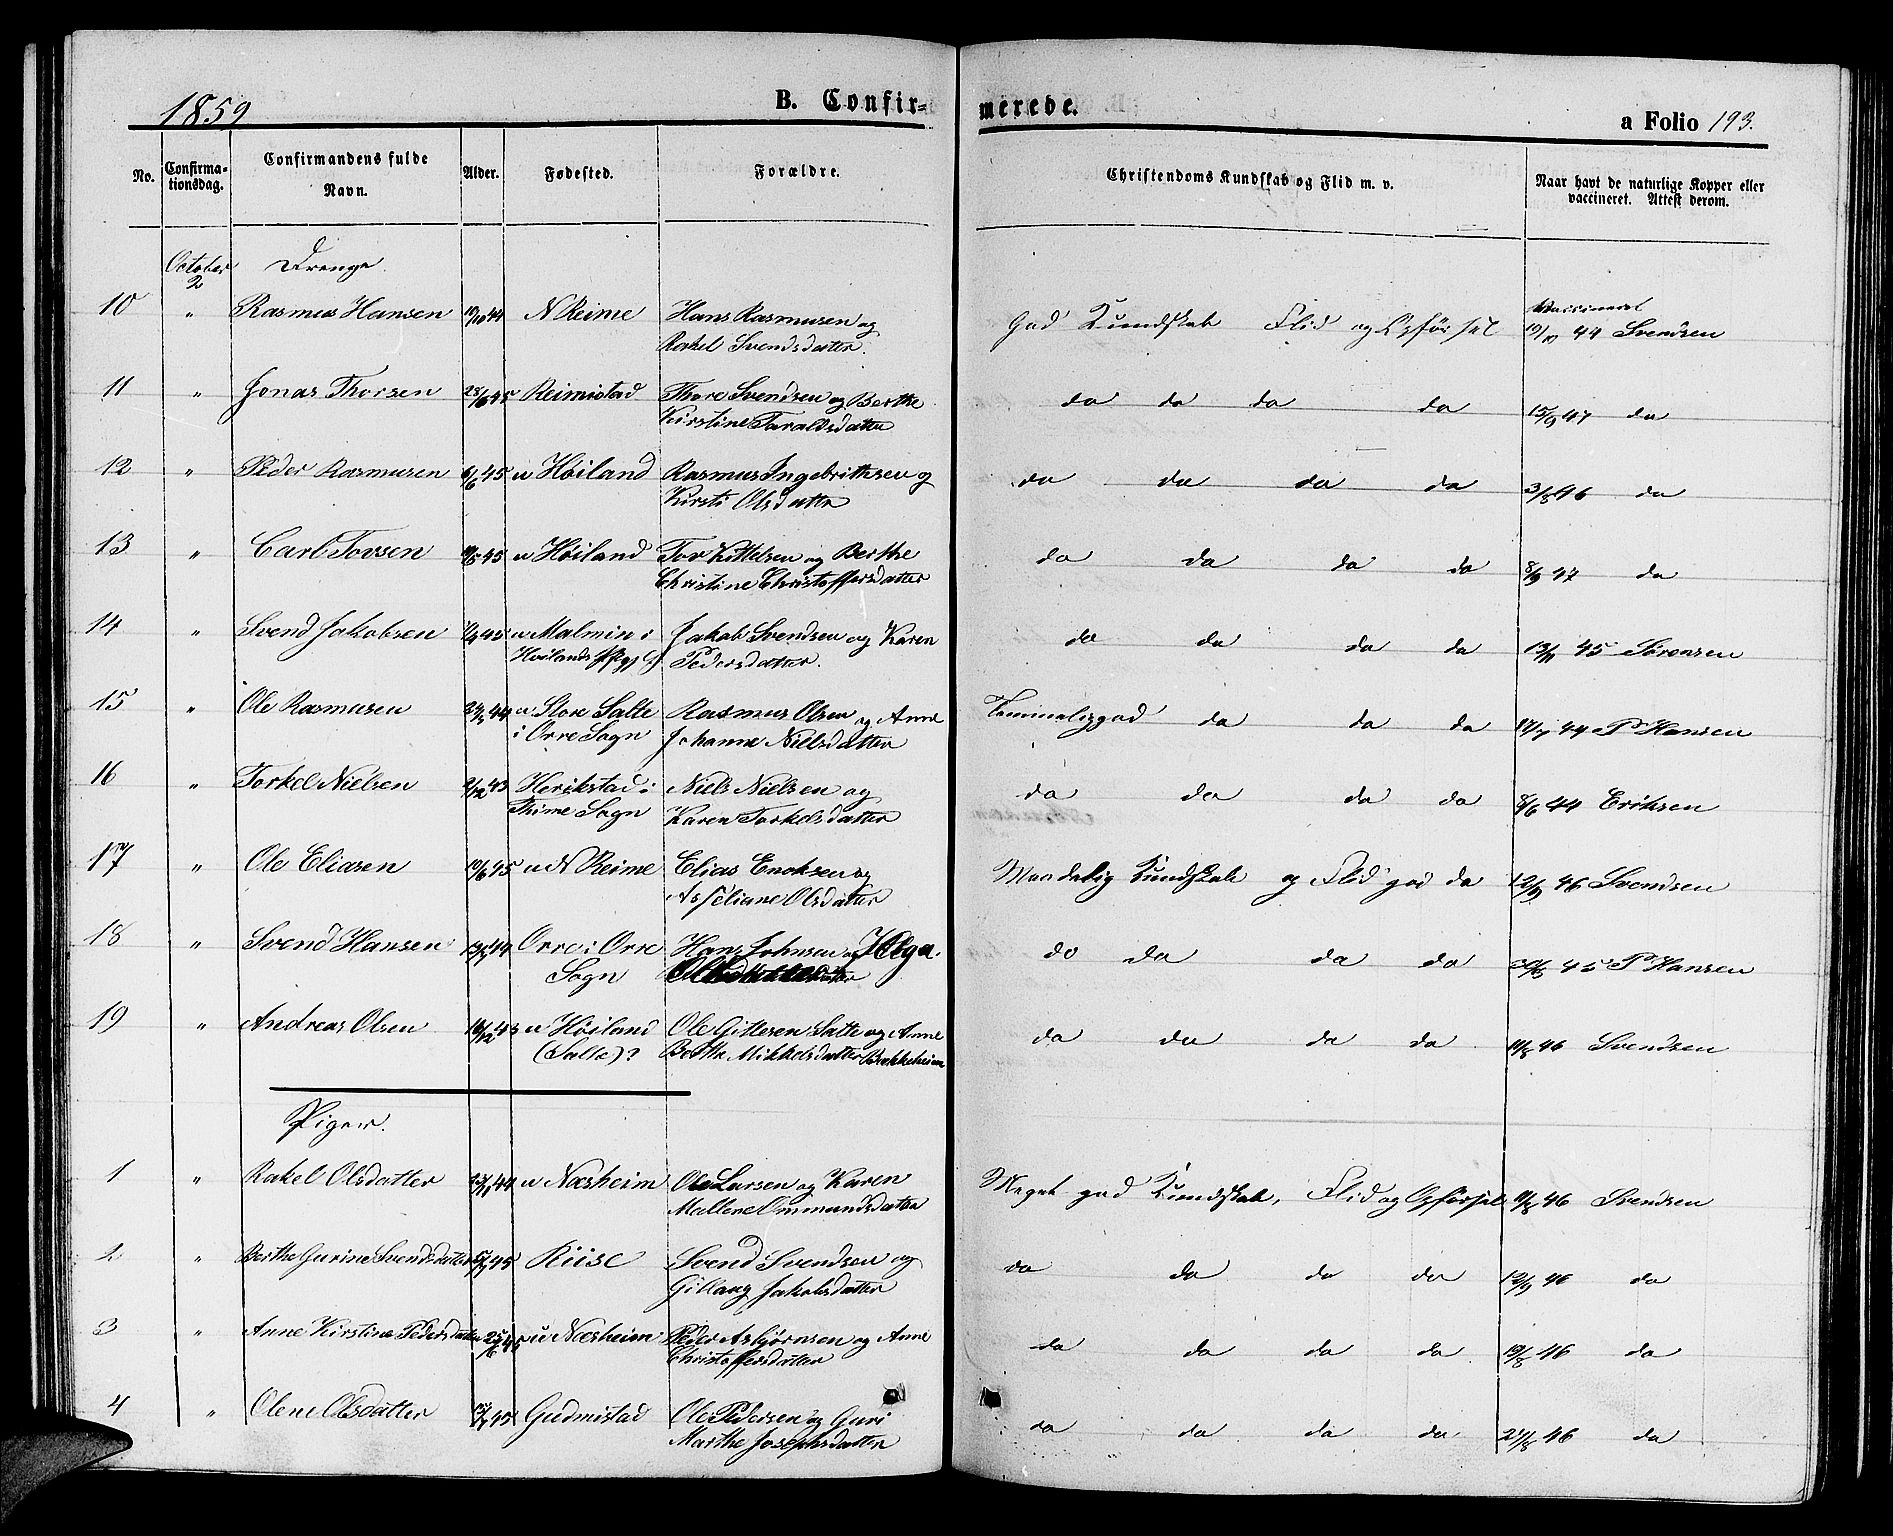 1859
B. Confir=
merede.
a Folio 193.
No.
Confirma-
tionsdag.
Confirmandens fulde
Navn.
Alder.
Fødested.
Forældre.
Christendoms Kundskab og Flid m. v.
Naar havt de naturlige Kopper eller
vaccineret. Attest derom.
October
2
Drenge.
10 " Rasmus Hansen 19/10 44 N Reime Hans Rasmusen og
Rakel Svendsdatter.
God Kundskab Flid og Opførsel 19/10 44 Svendsen
11 " Jonas Thorsen 45 Reimestad Thore Svendsen og Berthe
Kirstine Taraldsdatter
do do do do 15/9 47 do
12 " Peder Rasmusen 6/6 45 u Høiland Rasmus Ingebrithsen og
Kirsti Olsdatter
do do do do 3/8 46 do
13 " Carl Tovsen 45 u Høiland Tov Kittelsen og Berthe
Christine Christoffersdatter
do do do do 8/9 47 do
14 " Svend Jakobsen 45 u Malmin i
Høilands
Jakob Svendsen og Karen
Pedersdatter.
do do do do 13/11 45 Sørensen
15 " Ole Rasmusen 44 u Store Salte
i Orre Sogn
Rasmus Olsen og Anne
Johanne Nielsdatter
Temmelig god do do do 44 P Hansen
16 " Torkel Nielsen 2/12 43 Herikstad i
Thime Sogn
Niels Nielsen og
Karen Torkelsdatter
do do do do 8/6 44 Eriksen
17 " Ole Eliasen 10/6 45 u N Reime Elias Enoksen og
Asseliane Olsdatter
Maadelig Kundskab og Flid god do 12/9 46 Svendsen
18 " Svend Hansen Orre i Orre
Sogn
Hans Johnsen og Helga
do do do do 45 P Hansen
19 " Andreas Olsen 16/12 43 u Høiland
(Salte)?
Ole Gittersen Salte og Anne
Berthe Mikkelsdatter Brekkeheim
do do do do 46 Svendsen
Piger.
1 " Rakel Olsdatter 44 u Næsheim Ole Larsen og Karen
Mallene Ommundsdatter
Meget god Kundskab, Flid og Opførsel 46 Svendsen
2 " Berthe Gurine Svendsdatter 45 Riise Svend Svendsen og
Gillaug Jakobsdatter
do do do do 12/9 46 do
3 " Anne Kirstine Pedersdatter 45 u Næsheim Peder Asbjørnsen og Anne
Christoffersdatter
do do do do 46 do
4 " Olene Olsdatter 45 Gudmestad Ole Pedersen og Guri
Marthe Josephsdatter
do do do do 46 do